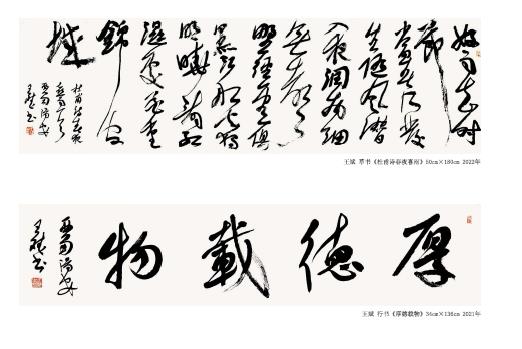 好雨知时
節
当春乃发
生随风潜
入夜润物细
无声
野径云俱
黑江船火独
明晓看红
湿处花重
錦官
城
杜甫诗春夜
喜雨一首
王斌书
王斌 草书《杜甫诗春夜喜雨》50cm×180cm 2022年
厚德載物
王斌书
王斌 行书《厚德载物》34cm×136cm 2021年